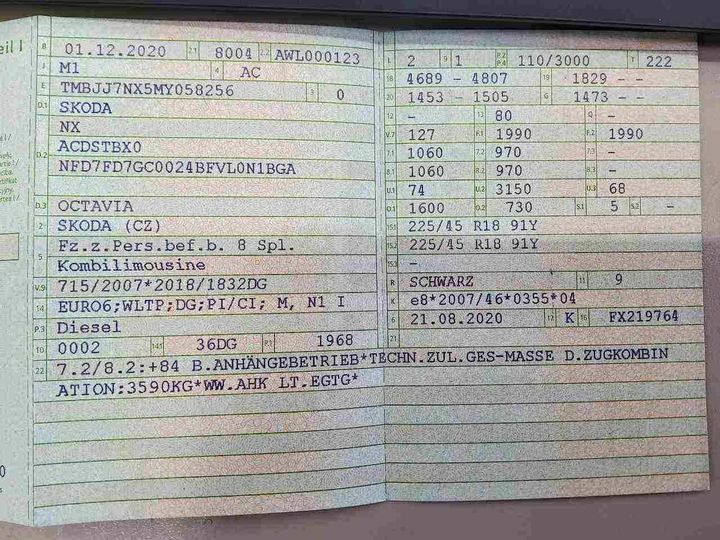 eil I
B 01.12.2020 2.1 8004 2.2 AWL000123
J M1 4 AC
E TMBJJ7NX5MY058256 3 0
D.1 SKODA
NX
D.2 ACDSTBX0
NFD7FD7GC0024BFVL0N1BGA
D.3 OCTAVIA
2 SKODA (CZ)
5 Fz.z.Pers.bef.b. 8 Spl.
Kombilimousine
V.9 715/2007*2018/1832DG
14 EURO6;WLTP;DG;PI/CI; M, N1 I
P.3 Diesel
10 0002 14.1 36DG P.1 1968
L 2 9 1 P.2 P.4 110/3000 T 222
18 4689 - 4807 19 1829 - -
20 1453 - 1505 G 1473 - -
12 - 13 80 Q -
V.7 127 F.1 1990 F.2 1990
7.1 1060 7.2 970 7.3 -
8.1 1060 8.2 970 8.3 -
U.1 74 U.2 3150 U.3 68
O.1 1600 O.2 730 S.1 5 S.2 -
15.1 225/45 R18 91Y
15.2 225/45 R18 91Y
15.3 -
R SCHWARZ 11 9
K e8*2007/46*0355*04
6 21.08.2020 17 K 16 FX219764
21
22 7.2/8.2:+84 B.ANHÄNGEBETRIEB*TECHN.ZUL.GES-MASSE D.ZUGKOMBIN
ATION:3590KG*WW.AHK LT.EGTG*